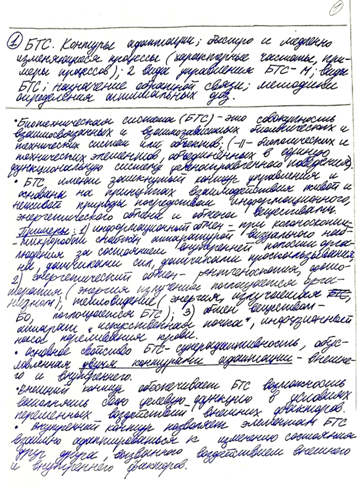 ① БТС. Контуры адаптации; быстро и медленно
изменяющиеся процессы (характерные частоты, при-
меры процессов); 2 вида управления БТС-М; виды
БТС; назначение обратной связи; методики
определения оптимальных
• Биотехническая система (БТС) - это совокупность
взаимосвязанных и взаимозависимых биологических и
технических систем или объектов; (-//- биологических и
технических элементов, объединённых в единую
функциональную систему целенаправленного поведения).
• БТС имеют замкнутый контур управления и
основаны на принципах взаимодействия живой и
неживой природы посредством информационного,
энергетического обмена и обмена веществом.
Примеры: 1) информационный обмен - при
микророботы снабжён аппаратурой визуального наб-
людения за состоянием внутренней полости орга-
на,
2) энергетический обмен - рентгеноскопия,
терапия (энергия излучения поглощается орга-
низмом), тепловидение (энергия, излучаемая
БО, поглощается БТС); 3) обмен веществом -
аппарат "искусственная почка", инфузионный
насос переливания крови.
• основное свойство БТС - обус-
ловленная двумя контурами адаптации - внешне-
го и внутреннего.
• внешний контур обеспечивает БТС возможность
выполнять свою целевую функцию в условиях
переменных воздействий внешних факторов.
• внутренний контур позволяет элементам БТС
взаимно адаптироваться к изменению состояния
друг друга, вызванного воздействием внешнего
и внутреннего факторов.